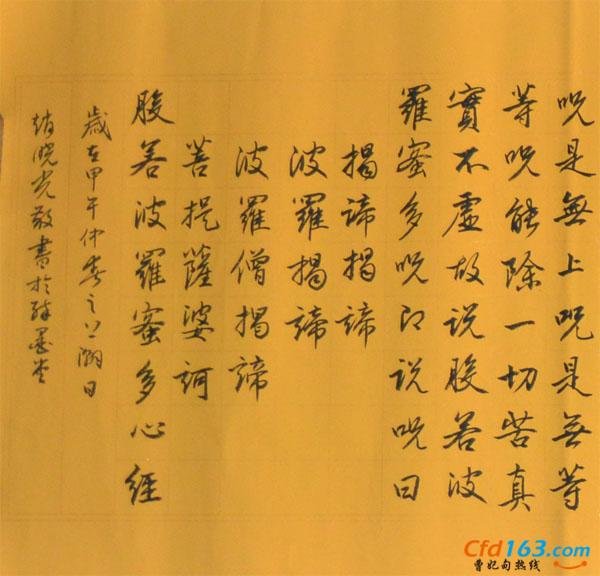 咒是無上咒是無等
等咒能除一切苦真
實不虛故说般若波
羅蜜多咒即说咒曰
揭諦揭諦
波羅揭諦
波羅僧揭諦
菩提薩婆訶
般若波羅蜜多心經
歲在甲午仲春之上澣日
趙晓光敬書於墨堂
Cfd163.com
曹妃甸热线